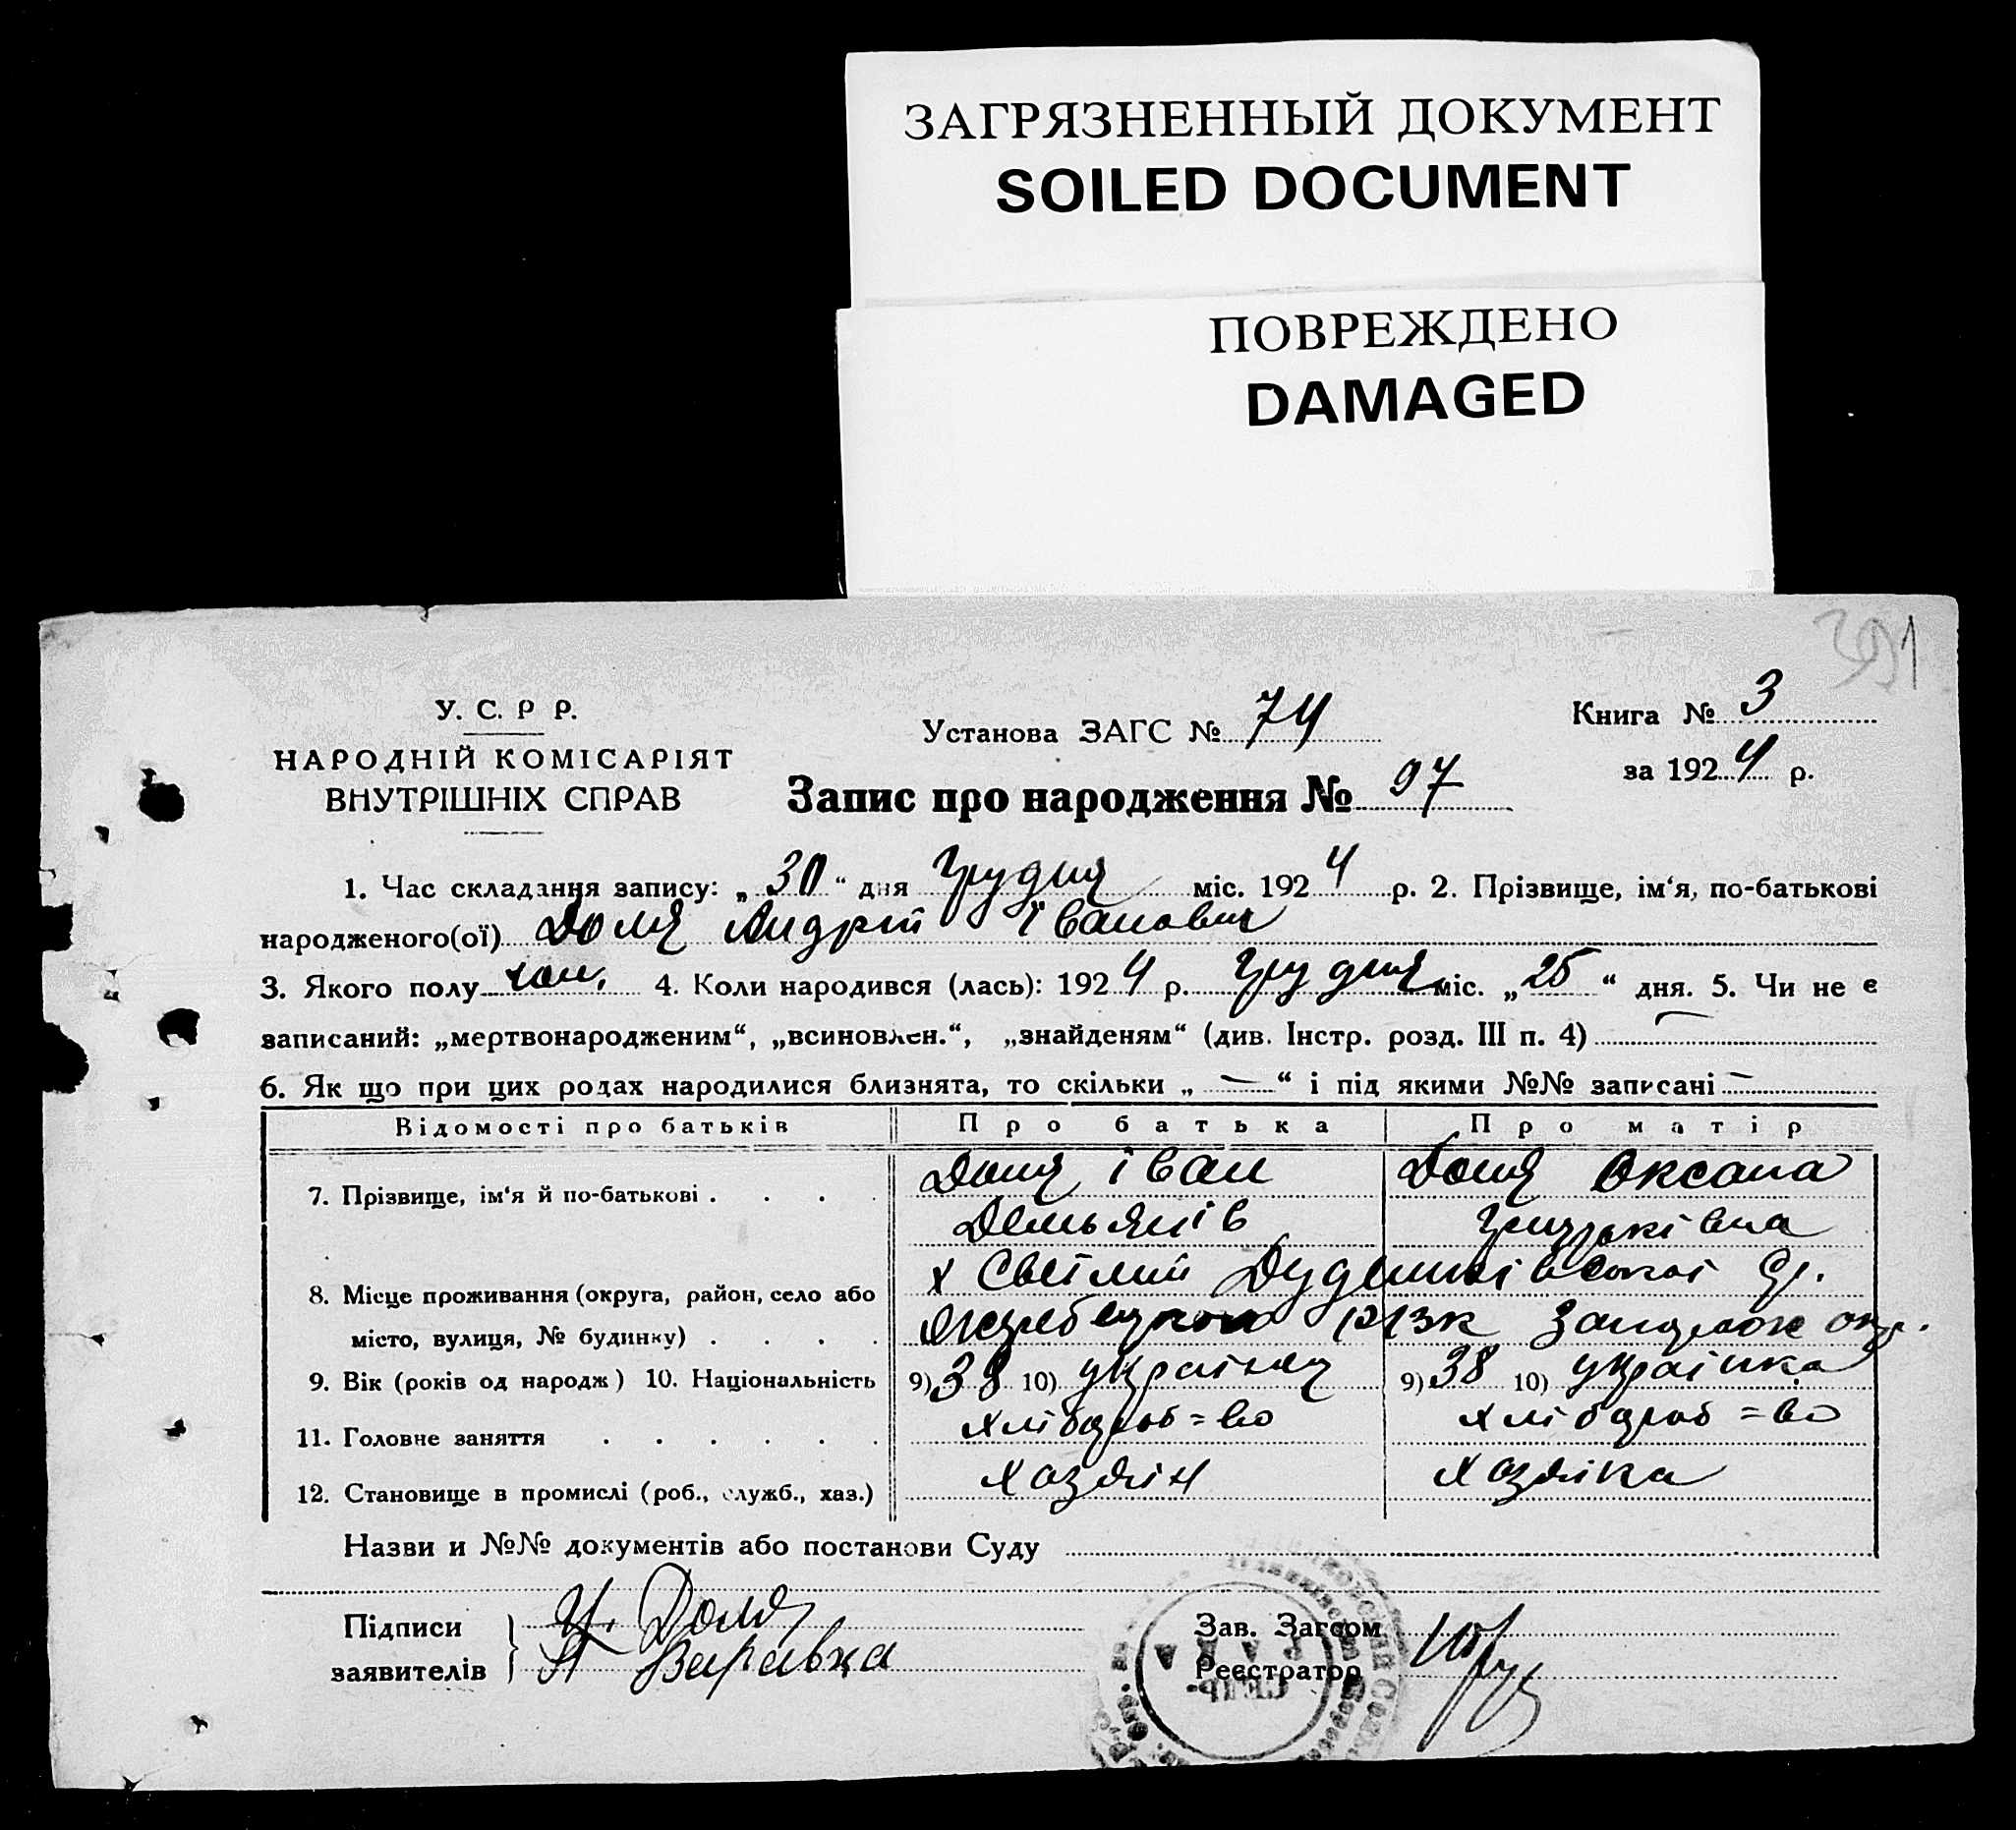 ЗАГРЯЗНЕННЫЙ ДОКУМЕНТ
SOILED DOCUMENT
ПОВРЕЖДЕНО
DAMAGED
391
У. С. Р Р.
НАРОДНІЙ КОМІСАРІЯТ
ВНУТРІШНІХ СПРАВ
Установа ЗАГС № 74
Книга № 3
за 1924 р.
Запис про народження № 97
1. Час складання запису: „30“ дня Грудня міс. 1924 р. 2. Прізвище, ім‘я, по-батькові
народженого(ої) Доля Андрій Іванович
3. Якого полу чол. 4. Коли народився (лась): 1924 р. Грудня міс. „25“ дня. 5. Чи не є
записаний: „мертвонародженим“, „всиновлен.“, „знайденям“ (див. Інстр. розд. III п. 4) —
6. Як що при цих родах народилися близнята, то скільки „ — “ і під якими №№ записані —
Відомості про батьків Про батька Про матір
7. Прізвище, ім‘я й по-батькові . . . . Доля Іван Доля Оксана
Демьянів
8. Місце проживання (округа, район, село або х Світлий
місто, вулиця, № будинку) . . . .
9. Вік (років од народж) 10. Національність 9) 38 10) українец 9) 38 10) українка
11. Головне заняття . . . . . . хлібороб=во хлібороб=во
12. Становище в промислі (роб., служб., хаз.) хазяін хазяіка
Назви и №№ документів або постанови Суду
Підписи И. Доля Зав. Загсом
заявителів П Варавка Реєстратор